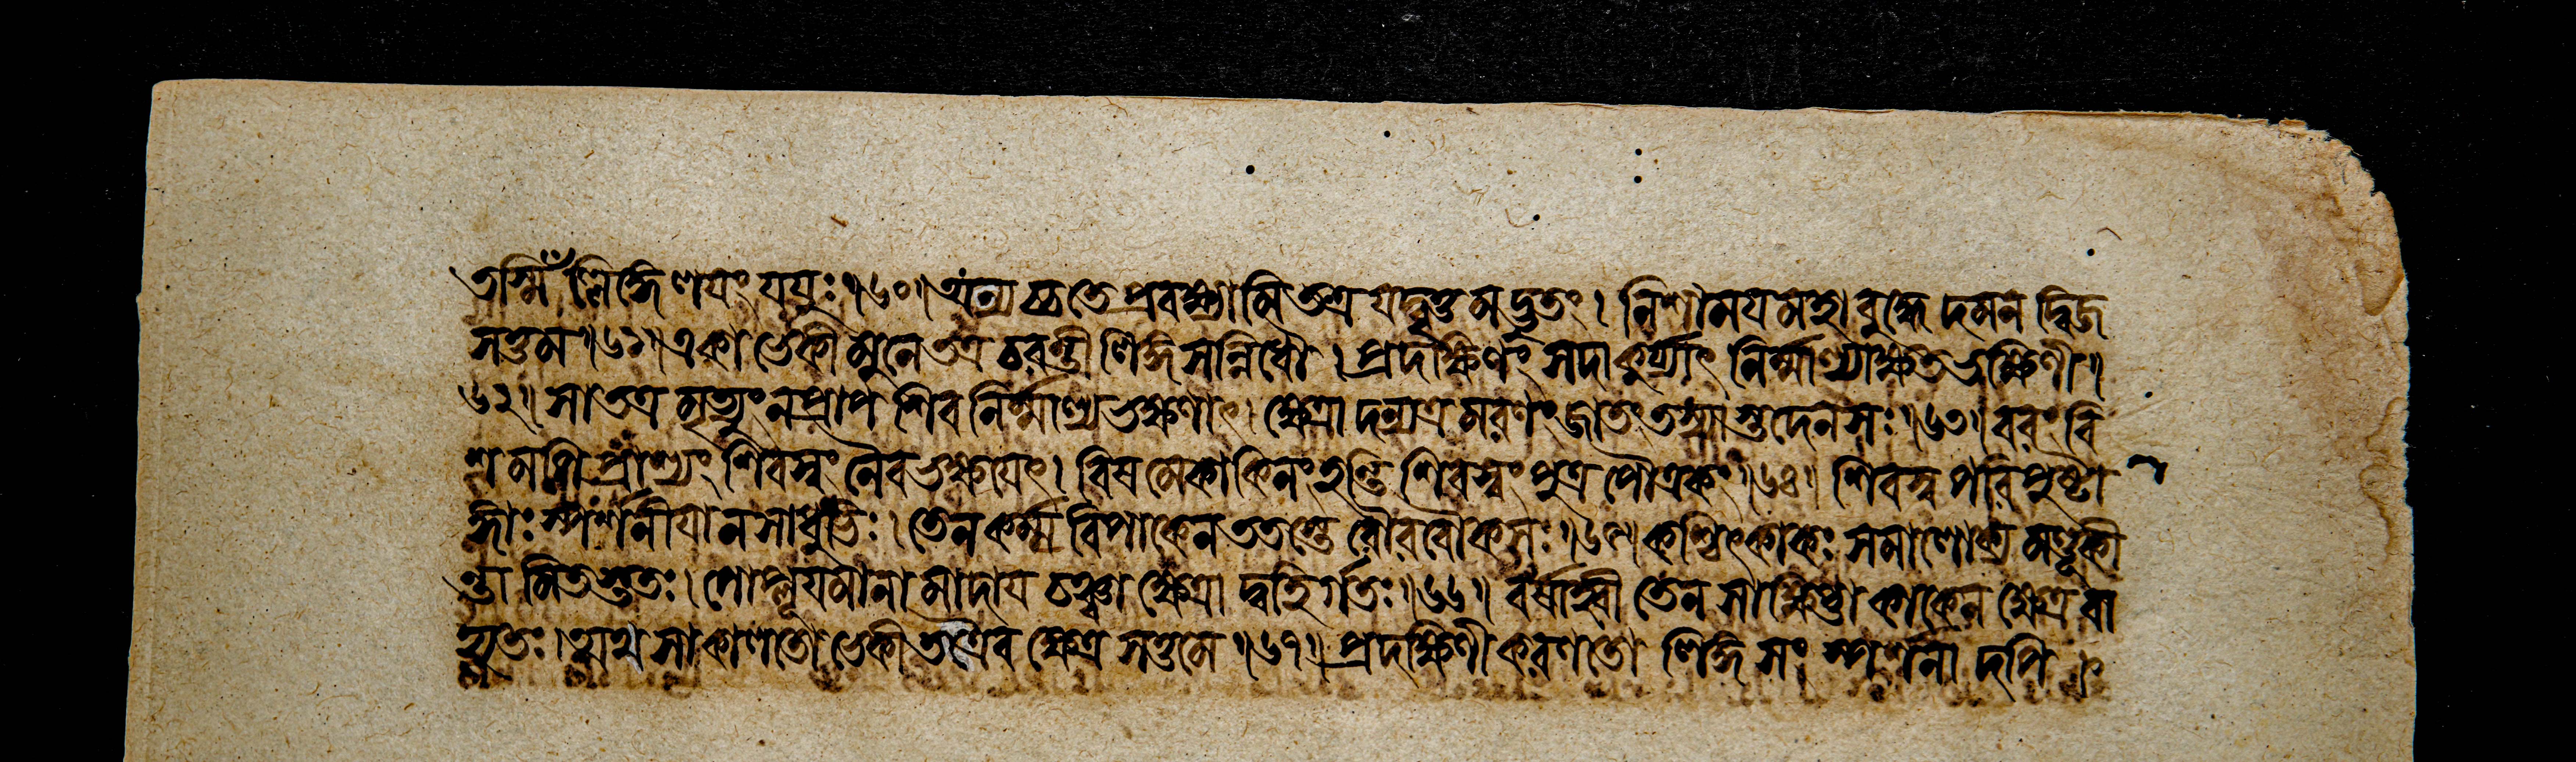 তস্মিঁল্লিঙ্গে লয়ং যযুঃ ॥৬০॥ অন্যচ্চ তে প্রবক্ষ্যামি তত্র যদ্বৃত্তমদ্ভুতং । নিশাময় মহাবুদ্ধে দমন দ্বিজ
সত্তম ॥৬১॥ একা ভেকী মুনে তত্র চরন্তী লিঙ্গসন্নিধৌ । প্রদক্ষিণং সদা কুর্য্যাৎ নির্ম্মাল্যাক্ষতভক্ষিণী ॥
৬২॥ সা তত্র মৃত্যুং ন প্রাপ শিবনির্ম্মাল্যভক্ষণাৎ । ক্ষেত্রাদন্যত্র মরণং জাতং তস্যাস্তদেনসঃ ॥৬৩॥ বরং বি
ষমপি প্রাশ্যং শিবস্বং নৈব ভক্ষয়েৎ । বিষমেকাকিনং হন্তি শিবস্বং পুত্রপৌত্রকং ॥৬৪॥ শিবস্বপরিপুষ্টা
ঙ্গাঃ স্পর্শনীয়া ন সাধুভিঃ । তেন কর্ম্মবিপাকেন ততস্তে রৌরবৌকসঃ ॥৬৫॥ কশ্চিৎ কাকঃ সমালোক্য মণ্ডূকী
ন্তামিতস্ততঃ । পোপ্লূয়মানামাদায় চঞ্চ্বা ক্ষেত্রাদ্বহির্গতঃ ॥৬৬॥ বর্ষাভ্বী তেন সা ক্ষিপ্তা কাকেন ক্ষেত্রবা
হ্যতঃ । অথ সা কালতো ভেকী তত্রৈব ক্ষেত্রসত্তমে ॥৬৭॥ প্রদক্ষিণীকরণতো লিঙ্গসংস্পর্শনাদপি ।